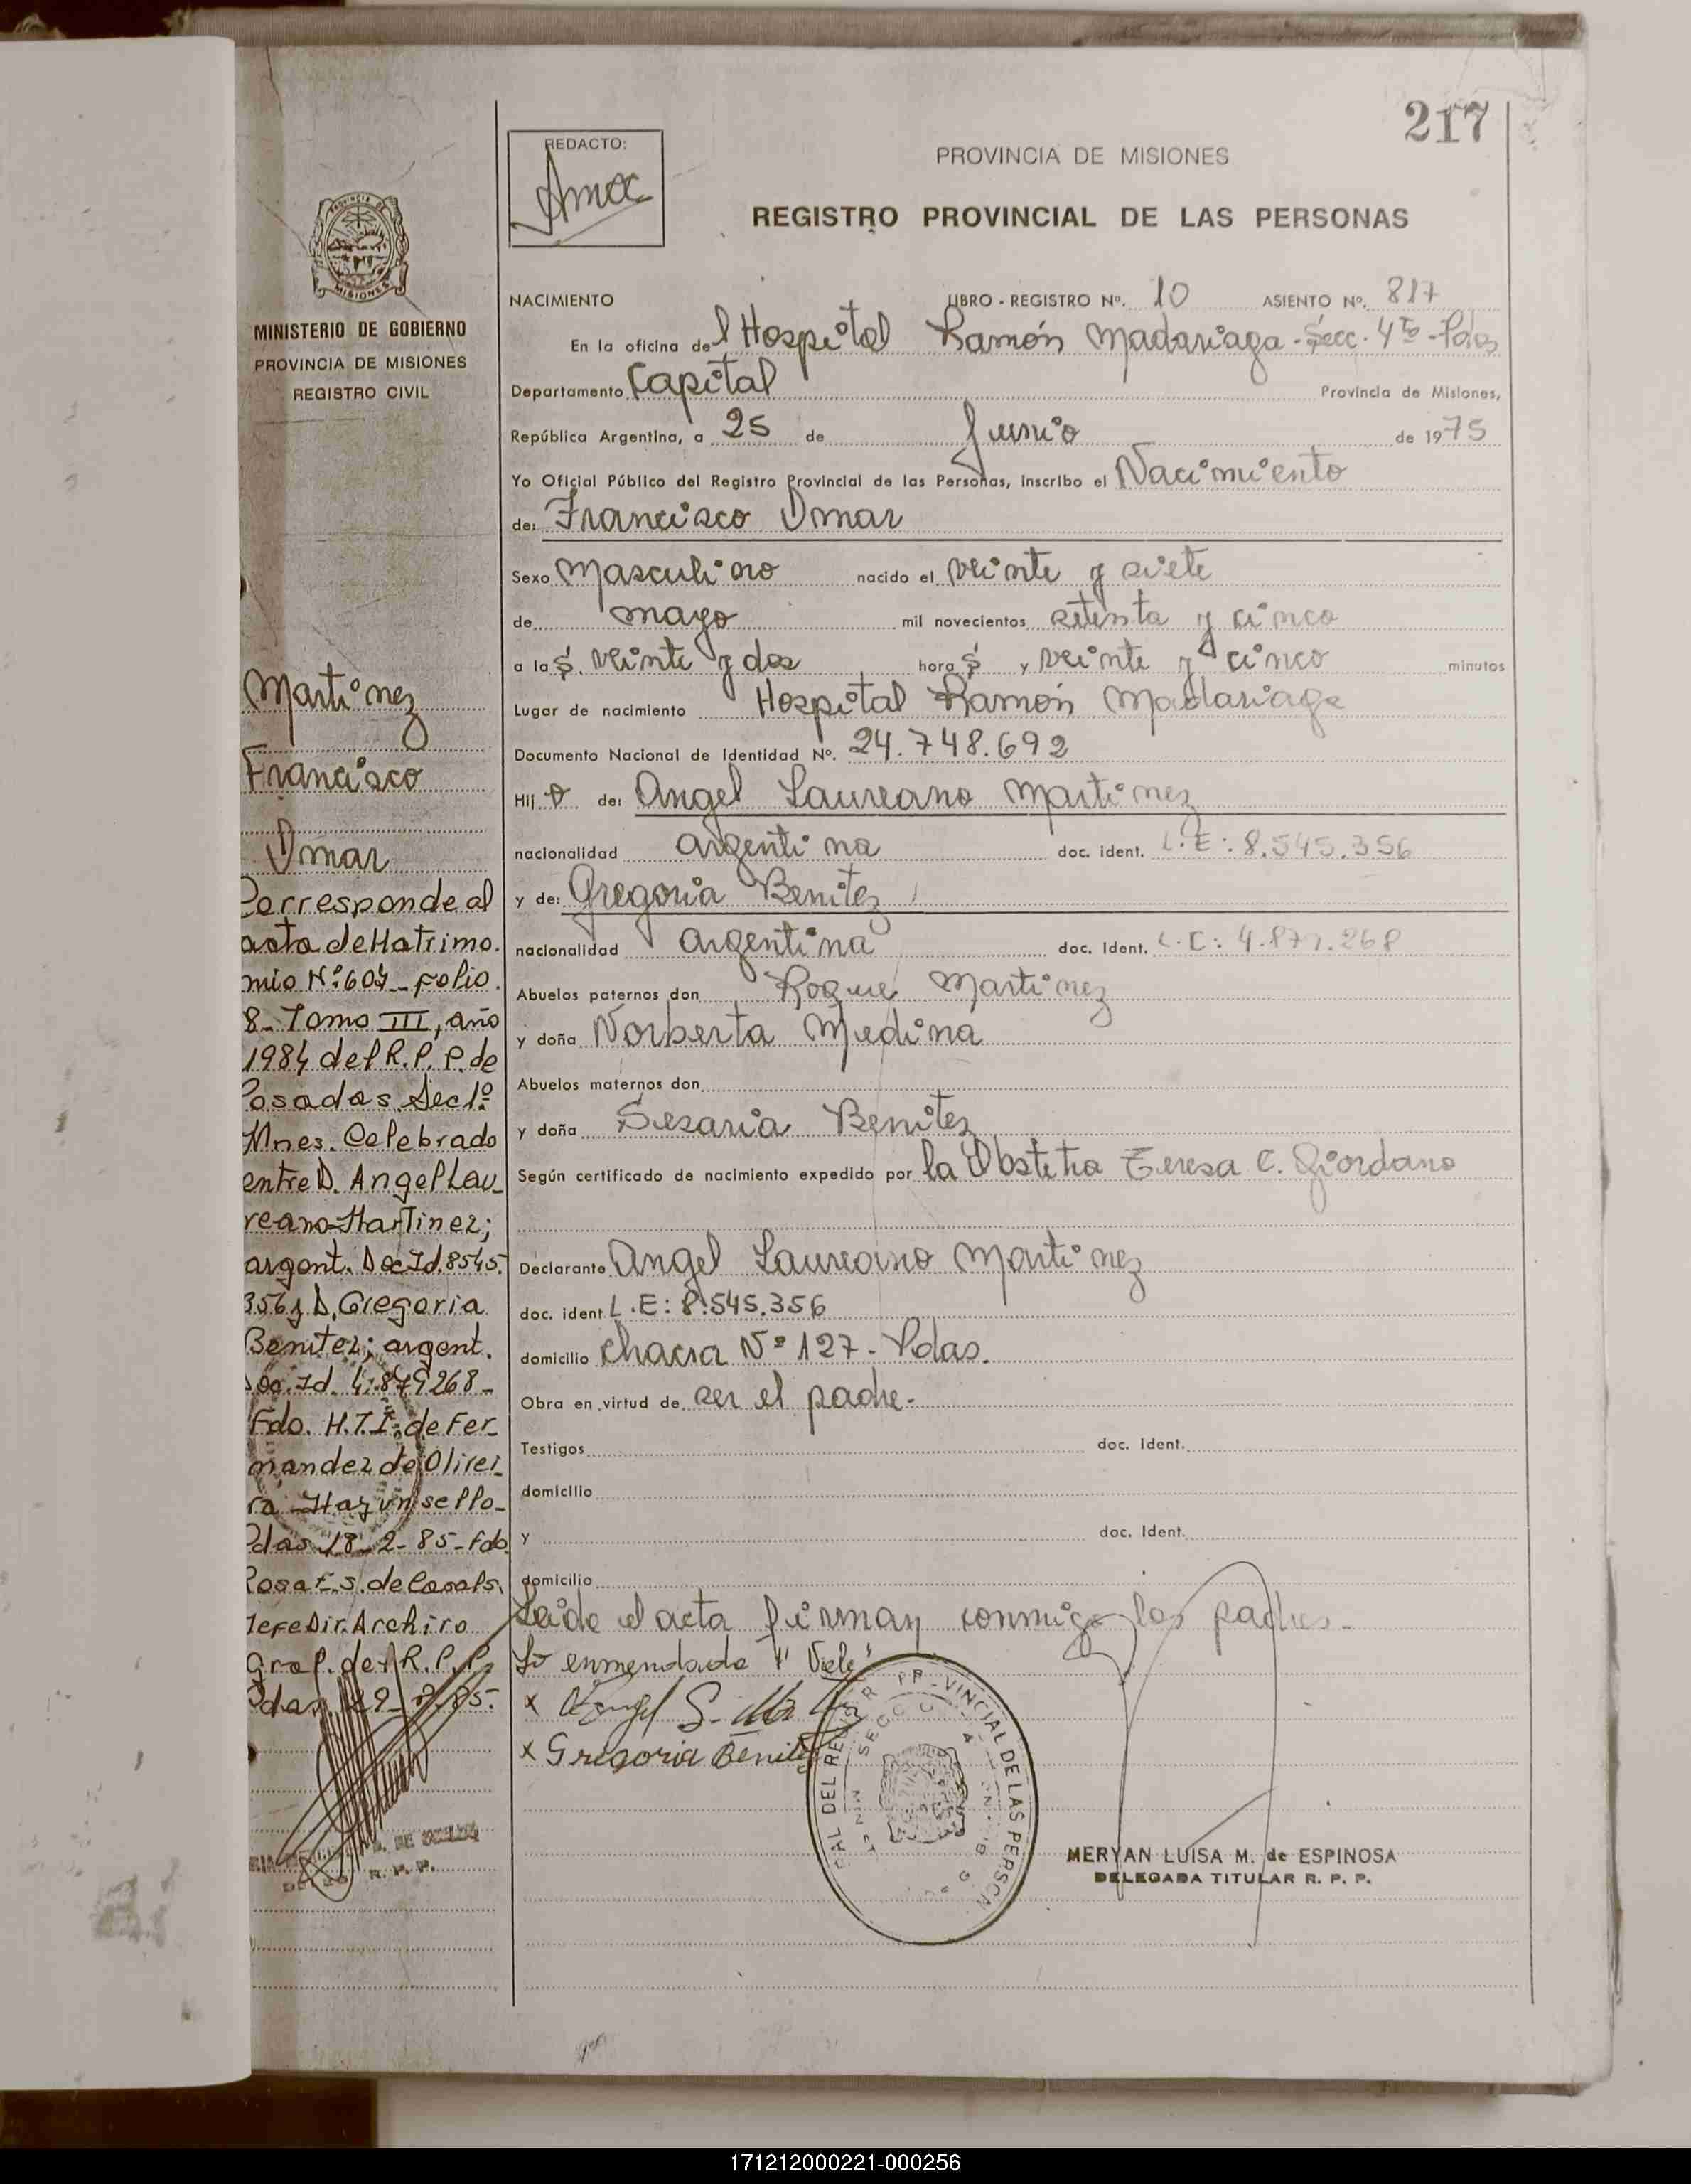 217
REDACTO:
PROVINCIA DE MISIONES
REGISTRO PROVINCIAL DE LAS PERSONAS
MISIONES
MINISTERIO DE GOBIERNO
PROVINCIA DE MISIONES
REGISTRO CIVIL
NACIMIENTO LIBRO - REGISTRO Nº. 10 ASIENTO Nº. 817
En la oficina del Hospital Ramón Madariaga - Secc. 4ta - Pdas
Departamento Capital Provincia de Misiones,
República Argentina, a 25 de Junio de 1975
Yo Oficial Público del Registro Provincial de las Personas, inscribo el Nacimiento
de: Francisco Omar
Sexo Masculino nacido el veinte y siete
de mayo mil novecientos setenta y cinco
a las veinte y dos horas y veinte y cinco minutos
Lugar de nacimiento Hospital Ramón Madariaga
Documento Nacional de Identidad Nº. 24.748.692
Hijo de: Angel Laureano Martinez
nacionalidad argentina doc. ident. L.E: 8.545.356
y de: Gregoria Benitez
nacionalidad argentina doc. Ident. L.C: 4.879.268
Abuelos paternos don Roque Martinez
y doña Norberta Medina
Abuelos maternos don
y doña Sesaria Benitez
Según certificado de nacimiento expedido por la Obstetra Teresa C. Giordano
Declarante Angel Laureano Martinez
doc. ident L.E: 8.545.356
domicilio chacra Nº 127 - Pdas.
Obra en virtud de ser el padre.-
Testigos doc. Ident.
domicilio
y doc. Ident.
domicilio
Leido el acta firman conmigo los padres.-
enmendado
x Angel
x Gregoria Benitez
MERYAN LUISA M. de ESPINOSA
DELEGADA TITULAR R. P. P.
Martinez
Francisco
Omar
Corresponde al
acta de Matrimo.
nio Nº 607 - Folio
8 - Tomo III, año
1984 del R.P.P. de
Posadas Secc 1º
Mnes. Celebrado
entre D. Angel Lau_
reano Martinez;
argent. Doc Id. 8545.
356 y D. Gregoria
Benitez; argent.
Doc. Id. 4.879268 -
Fdo. H.T.I. de Fer_
nandez de Olivei_
ra - Hay un sello -
Pdas 18-2-85 - Fdo
Rosa E.S. de Casals
Jefe Dir. Archivo
Gral. del R.P.P.
Pdas
R. P. P.
171212000221-000256